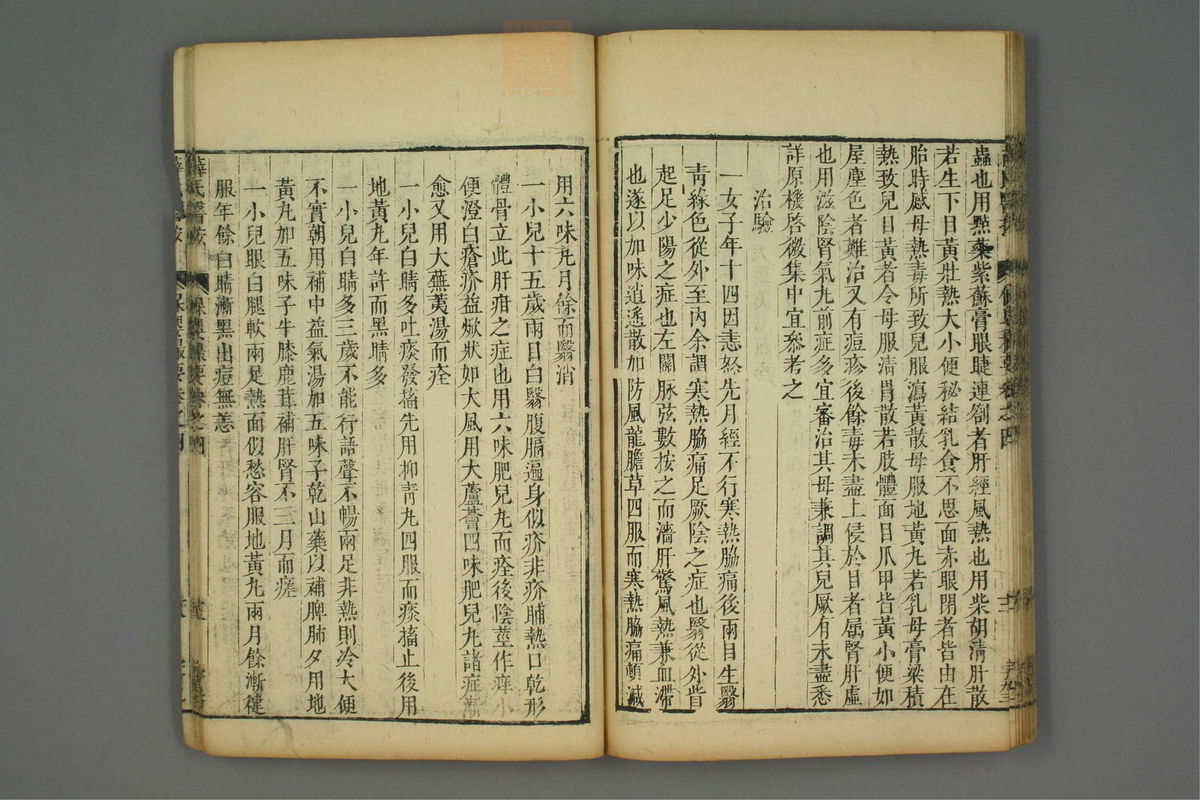 蟲也用點藥紫蘇膏眼睫連劄者肝經風熱也用柴胡清肝散
若生下目黃壯熱大小便秘結乳食不思面赤眼閉者皆由在
胎時感母熱毒所致兒服瀉黃散母服地黃丸若乳母膏粱積
熱致兒目黃者令母服清胃散若肢體面目爪甲皆黃小便如
屋塵色者難治又有痘疹後餘毒未盡上侵於目者属腎肝虛
也用滋陰腎氣丸前症多宜審治其母兼調其兒厥有未盡悉
詳原機啓微集中宜叅考之
治驗
一女子年十四因恚怒先月經不行寒熱脇痛後兩目生翳
青綠色從外至內余謂寒熱脇痛足厥陰之症也翳從外眥
起足少陽之症也左關脉弦數按之而濇肝驚風熱兼血滯
也遂以加味逍遙散加防風龍膽草四服而寒熱脇痛頓減
用六味丸月餘而翳消
一小兒十五歲兩目白翳腹膈遍身似疥非疥晡熱口乾形
體骨立此肝疳之症也用六味肥兒丸而痊後陰莖作痒小
便澄白瘡疥益焮狀如大風用大蘆薈四味肥兒丸諸症漸
愈又用大蕪荑湯而痊
一小兒白睛多吐痰發搐先用抑青丸四服而痰搐止後用
地黃丸年許而黑睛多
一小兒白睛多三歲不能行語聲不暢兩足非熱則冷大便
不實朝用補中益氣湯加五味子乾山藥以補脾肺夕用地
黃丸加五味子牛膝鹿茸補肝腎不三月而瘥
一小兒眼白腿軟兩足熱面似愁容服地黃丸兩月餘漸健
服年餘白睛漸黑出痘無恙
薛氏醫按
保嬰撮要卷之四